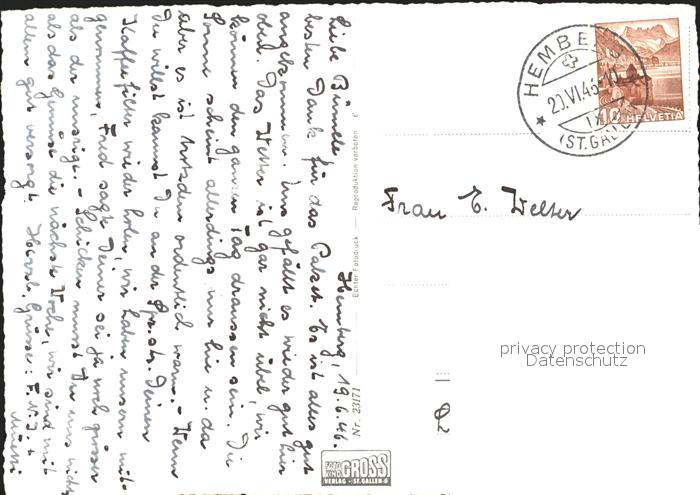 Hemberg, 19.6.46.
Liebe Bünneli!
besten Dank für das Paket. Es ist alles gut
angekommen. Uns gefällt es wieder gut hier
oben. Das Wetter ist gar nicht übel, wir
können den ganzen Tag draussen sein. Die
Sonne scheint allerdings nur hie u. da
aber es ist trotzdem ordentlich warm. - Wenn
Du willst kannst Du an der Spr.str. Deinen
Kaffeefilter wieder holen, wir haben unsern mit-
genommen, Fred sagte Deiner sei ja noch grösser
als der unsrige. - Schicken musst Du uns nichts
als das Gemüse die nächste Woche, wir sind mit
allem gut versorgt. Herzl. Grüsse:
Nr. 23171
Echter Fotodruck
Reproduktion verboten
FOTO GROSS
VERLAG - ST. GALLEN-O
HEMBERG
20.VI.46
(ST. GALLEN)
10 HELVETIA
Frau E. Welter
privacy protection
Datenschutz